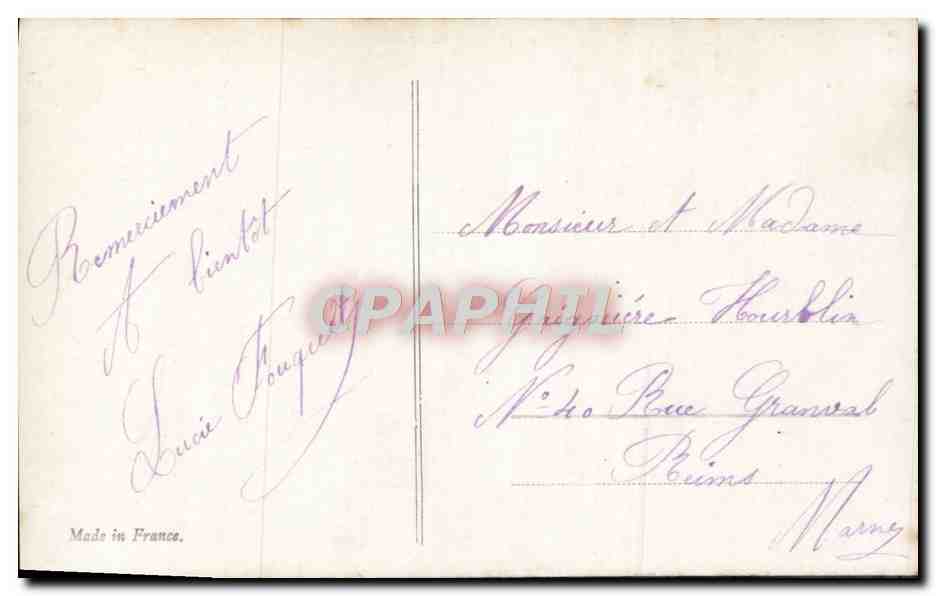 Remerciement
A bientôt
Lucie Fouquet
Made in France.
Monsieur et Madame
Hourblin
N° 40 Rue Granval
Reims
Marne
CPAPHIL